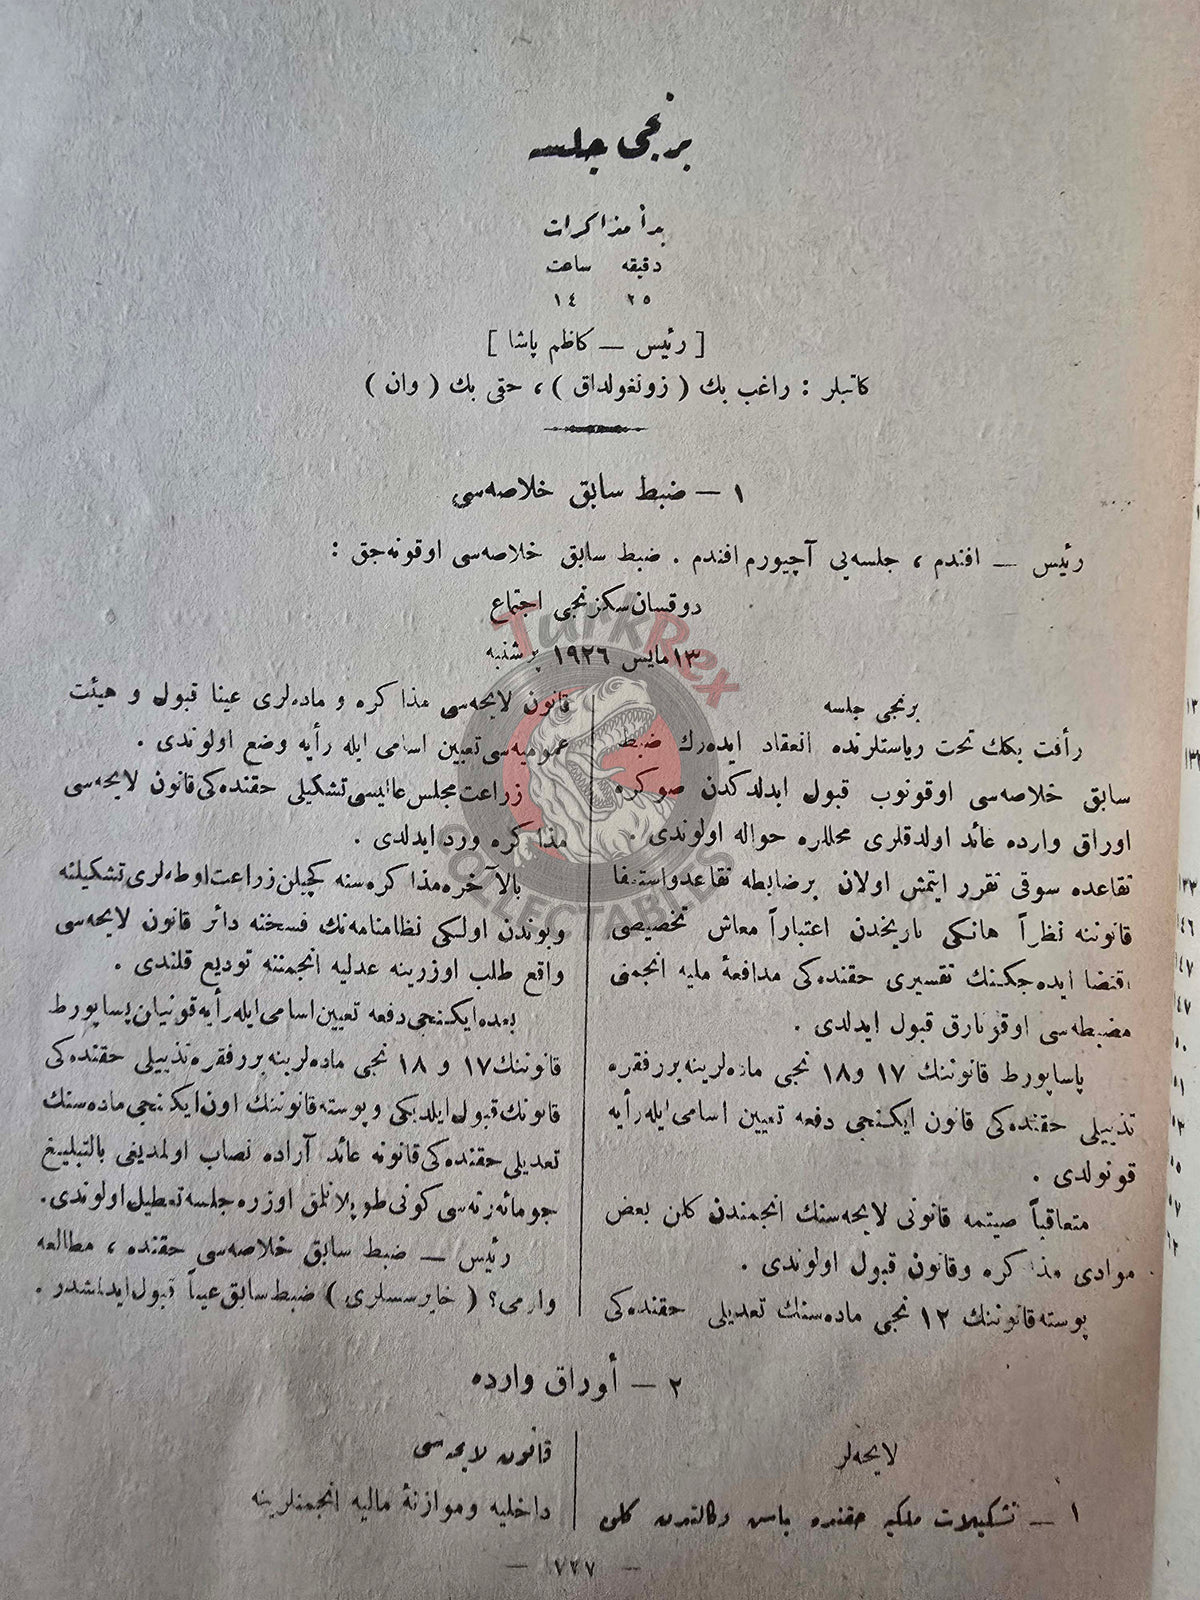 برنجی جلسه
بدأ مذاكرات
دقیقه ساعت
٢٥ ١٤
[ رئیس — كاظم پاشا ]
كاتبلر : راغب بك ( زونغولداق ) ، حقی بك ( وان )
١ — ضبط سابق خلاصه‌سی
رئیس — افندم ، جلسه‌یی آچیورم افندم . ضبط سابق خلاصه‌سی اوقونه‌جق :
دوقسان سكزنجی اجتماع
١٣ مایس ١٩٢٦ پرشنبه
برنجی جلسه
رأفت بكك تحت ریاستلرنده انعقاد ایده‌رك ضبط
سابق خلاصه‌سی اوقونوب قبول ایدلدكدن صوكره
اوراق وارده عائد اولدقلری محللره حواله اولوندی .
تقاعده سوقی تقرر ایتمش اولان برضابطه تقاعدواستعفا
قانوننه نظراً هانكی تاریخدن اعتباراً معاش تخصیصی
اقتضا ایده‌جكنك تفسیری حقنده‌كی مدافعۀ ملیه انجمنی
مضبطه‌سی اوقونارق قبول ایدلدی .
پاساپورط قانوننك ١٧ و١٨ نجی ماده‌لرینه بررفقره
تذییلی حقنده‌كی قانون ایكنجی دفعه تعیین اسامی ایله رأیه
قونولدی .
متعاقباً صیتمه قانونی لایحه‌سنك انجمندن كلن بعض
موادی مذاكره وقانون قبول اولوندی .
پوسته قانوننك ١٢ نجی ماده‌سنك تعدیلی حقنده‌كی
قانون لایحه‌سی مذاكره و ماده‌لری عینا قبول و هیئت
عمومیه‌سی تعیین اسامی ایله رأیه وضع اولوندی .
زراعت مجلس عالیسی تشكیلی حقنده‌كی قانون لایحه‌سی
مذاكره ورد ایدلدی .
بالآخره مذاكره‌سنه كچیلن زراعت اوطه‌لری تشكیلنه
وبوندن اولكی نظامنامه‌نك فسخنه دائر قانون لایحه‌سی
واقع طلب اوزرینه عدلیه انجمننه تودیع قلندی .
بعده ایكنجی دفعه تعیین اسامی ایله رأیه قونیلان پساپورط
قانوننك ١٧ و ١٨ نجی ماده‌لرینه بررفقره تذییلی حقنده‌كی
قانونك قبول ایلدیكی وپوسته قانوننك اون ایكنجی ماده‌سنك
تعدیلی حقنده‌كی قانونه عائد آراده نصاب اولمدیغی بالتبلیغ
جومائه‌رته‌سی كونی طوپلانلق اوزره جلسه تعطیل اولوندی.
رئیس — ضبط سابق خلاصه‌سی حقنده ، مطالعه
وارمی؟ ( خایر سسلری ) ضبط سابق عیناً قبول ایدلمشدر .
٢ — أوراق وارده
لایحه‌لر
١ — تشكیلات ملكیه حقنده باش وكالتدن كلن
قانون لایحه‌سی
داخلیه وموازنۀ مالیه انجمنلرینه
— ٧٢٧ —
TurkRex
COLLECTABLES